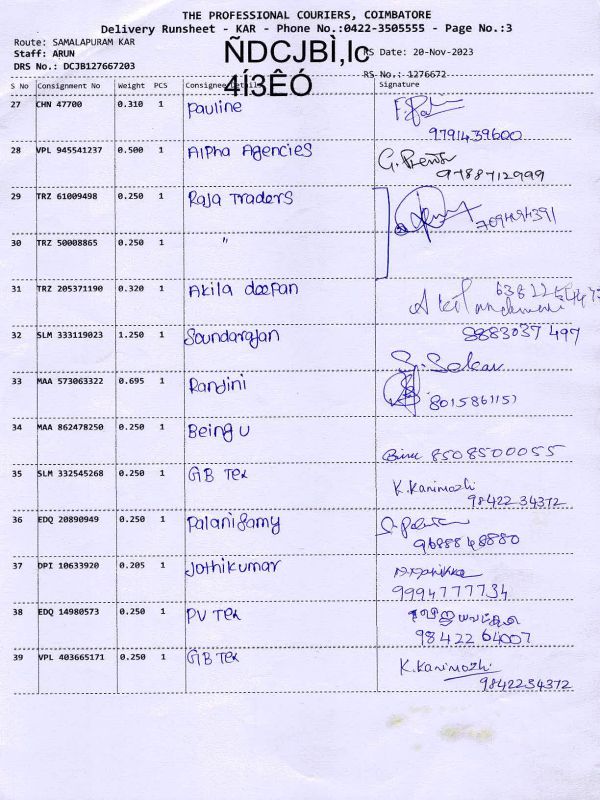 THE PROFESSIONAL COURIERS, COIMBATORE
Delivery Runsheet - KAR - Phone No.:0422-3505555 - Page No.:3
Route: SAMALAPURAM KAR
Staff: ARUN
DRS No.: DCJB127667203
ÑDCJBÌ,lc
4Í3ÊÓ
RS Date: 20-Nov-2023
RS No.: 1276672
S No Consignment No Weight PCS Consignee Details Signature
27 CHN 47700 0.310 1 Pauline
9791439600
28 VPL 945541237 0.500 1 Alpha Agencies
9788712999
29 TRZ 61009498 0.250 1 Raja Traders
30 TRZ 50008865 0.250 1 "
31 TRZ 205371190 0.320 1 Akila deepan
32 SLM 333119023 1.250 1 Soundarajan
8883037 497
S. Sekar
33 MAA 573063322 0.695 1 Randini
8015861151
34 MAA 862478250 0.250 1 Being u
8508500055
35 SLM 332545268 0.250 1 GB Tex
K. Kanimozhi
98422 34372
36 EDQ 20890949 0.250 1 Palanisamy
9688848880
37 DPI 10633920 0.205 1 Jothikumar
9994777734
38 EDQ 14980573 0.250 1 PV Tex
98422 64007
39 VPL 403665171 0.250 1 GB Tex
K. Kanimozhi
9842234372